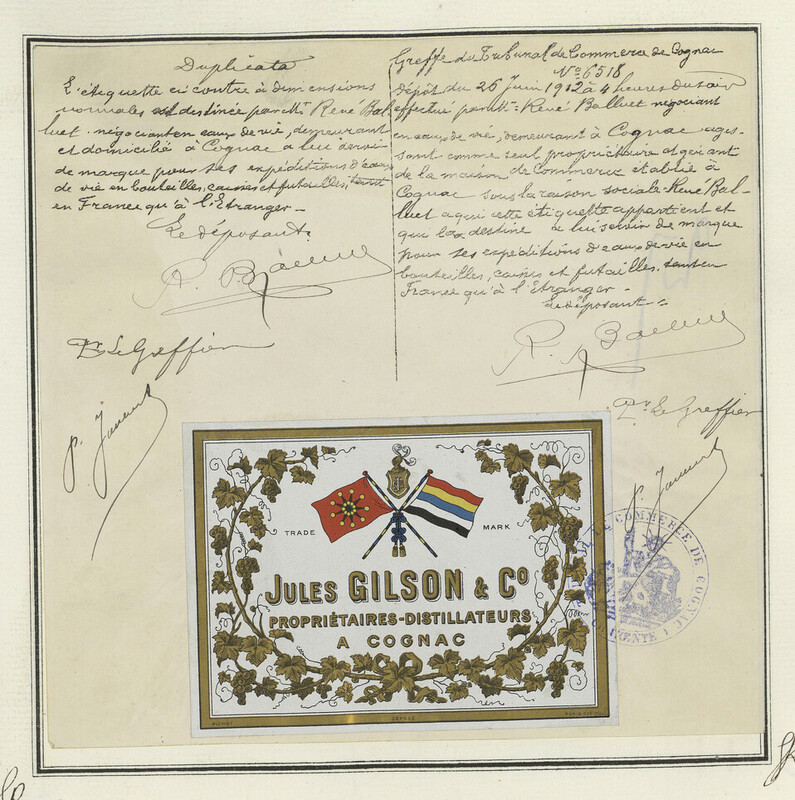 Duplicata
L'étiquette ci contre à dimensions
normales est destinée par Mr René Bal-
luet négociant en eaux de vie, demeurant
et domicilié à Cognac à lui servir
de marque pour ses expéditions d'eaux
de vie en bouteilles, caisses et futailles, tant
en France qu'à l'Etranger.-
Le déposant.
R. Balluet
Pr Le Greffier
p.
Greffe du Tribunal de Commerce de Cognac
No 6518
Dépôt du 26 Juin 1912 à 4 heures du soir
effectué par Mr. René Balluet négociant
en eaux de vie, demeurant à Cognac agis-
sant comme seul propriétaire et gérant
de la maison de Commerce établie à
Cognac sous la raison sociale René Bal-
luet a qui cette étiquette appartient et
qui la destine à lui servir de marque
pour ses expéditions d'eaux de vie en
bouteilles, caisses et futailles, tant en
France qu'à l'Etranger -
Le déposant :
R. Balluet
Pr Le Greffier
p.
TRADE MARK
JULES GILSON & Co
PROPRIÉTAIRES-DISTILLATEURS
A COGNAC
DÉPOSÉ
DE COMMERCE DE COGNAC